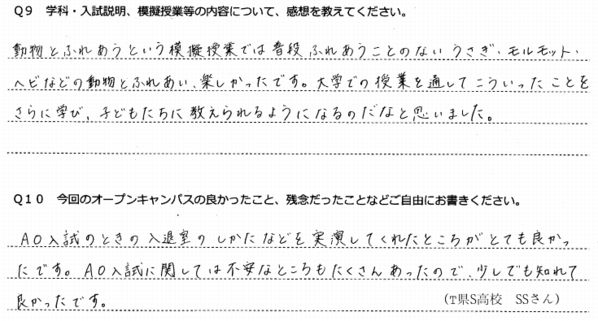 Q9 学科・入試説明、模擬授業等の内容について、感想を教えてください。
動物とふれあうという模擬授業では普段ふれあうことのないうさぎ・モルモット・
ヘビなどの動物とふれあい、楽しかったです。大学での授業を通してこういったことを
さらに学び、子どもたちに教えられるようになるのだなと思いました。
Q10 今回のオープンキャンパスの良かったこと、残念だったことなどご自由にお書きください。
AO入試のときの入退室のしかたなどを実演してくれたところがとても良かっ
たです。AO入試に関しては不安なところもたくさんあったので、少しでも知れて
良かったです。
(T県S高校 SSさん)